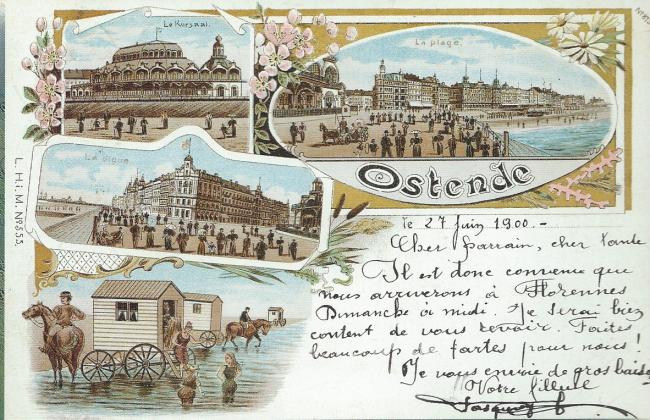 Le Kursaal.
La plage.
La digue
Ostende
L. H. i. M. Nº 855.
le 27 juin 1900. -
Cher parrain, cher tante
Il est donc convenu que
nous arriverons à Florennes
Dimanche à midi. Je serai bien
content de vous revoir. Faites
beaucoup de tartes pour nous!
Je vous envoie de gros baisers
Votre filleul